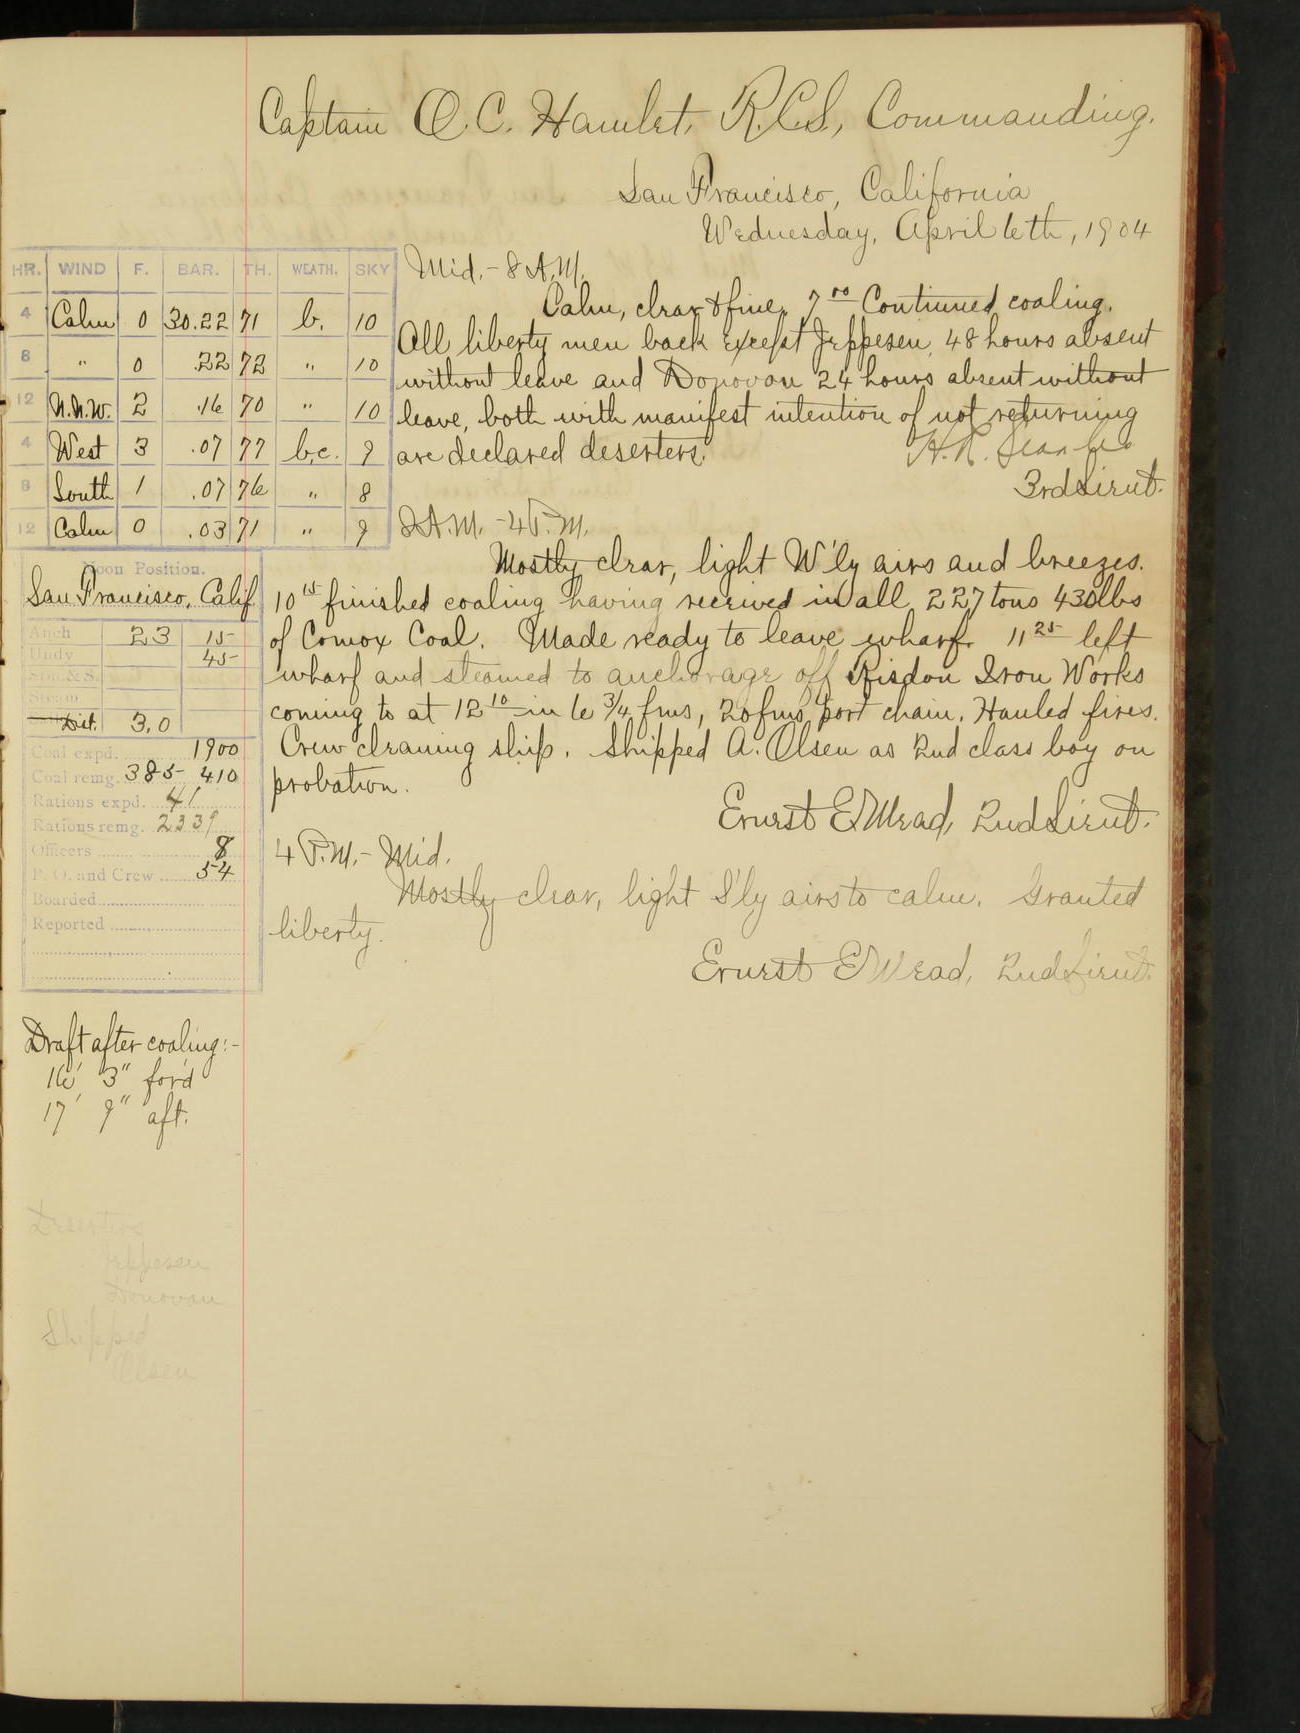 Captain O. C. Hamlet, R.C.S., Commanding.
San Francisco, California
Wednesday, April 6th, 1904
HR. WIND F. BAR. TH. WEATH. SKY
4 Calm 0 30.22 71 b. 10
8 " 0 .22 72 " 10
12 N.N.W. 2 .16 70 " 10
4 West 3 .07 77 b.c. 9
8 South 1 .07 76 " 8
12 Calm 0 .03 71 " 9
Mid. - 8 A.M.
Calm, clear & fine. 7 00 Continued coaling.
All liberty men back except Jeppesen, 48 hours absent
without leave and Donovan 24 hours absent without
leave, both with manifest intention of not returning
are declared deserters.
H. R.
3rd Lieut.
8 A.M. - 4 P.M.
Mostly clear, light W'ly airs and breezes.
10 15 finished coaling having received in all 227 tons 430 lbs
of Comox Coal. Made ready to leave wharf. 11 25 left
wharf and steamed to anchorage off Risdon Iron Works
coming to at 12 10 in 6 3/4 fms, 20 fms port chain. Hauled fires.
Crew cleaning ship. Shipped A. Olsen as 2nd class boy on
probation.
Ernest E Mead, 2nd Lieut.
4 P.M. - Mid.
Mostly clear, light S'ly airs to calm. Granted
liberty.
Ernest E Mead, 2nd Lieut.
Noon Position.
San Francisco, Calif
Anch 23 15
Undy 45
Stm. & S.
Steam
Dist. 3.0
Coal expd. 1900
Coal remg. 385 410
Rations expd. 41
Rations remg. 2339
Officers 8
P. O. and Crew 54
Boarded
Reported
Draft after coaling:-
16' 3" for'd
17' 9" aft.
Deserters
Jeppesen
Donovan
Shipped
Olsen